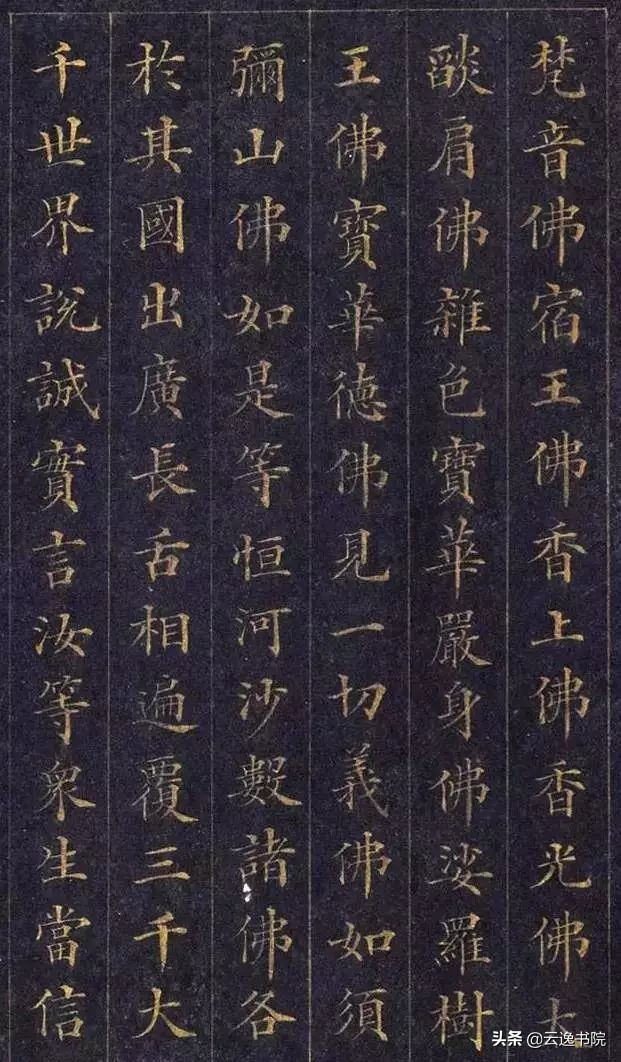 梵音佛宿王佛香上佛香光佛大
燄肩佛雜色寶華嚴身佛娑羅樹
王佛寶華德佛見一切義佛如須
彌山佛如是等恒河沙數諸佛各
於其國出廣長舌相遍覆三千大
千世界說誠實言汝等衆生當信
头条 @云逸书院